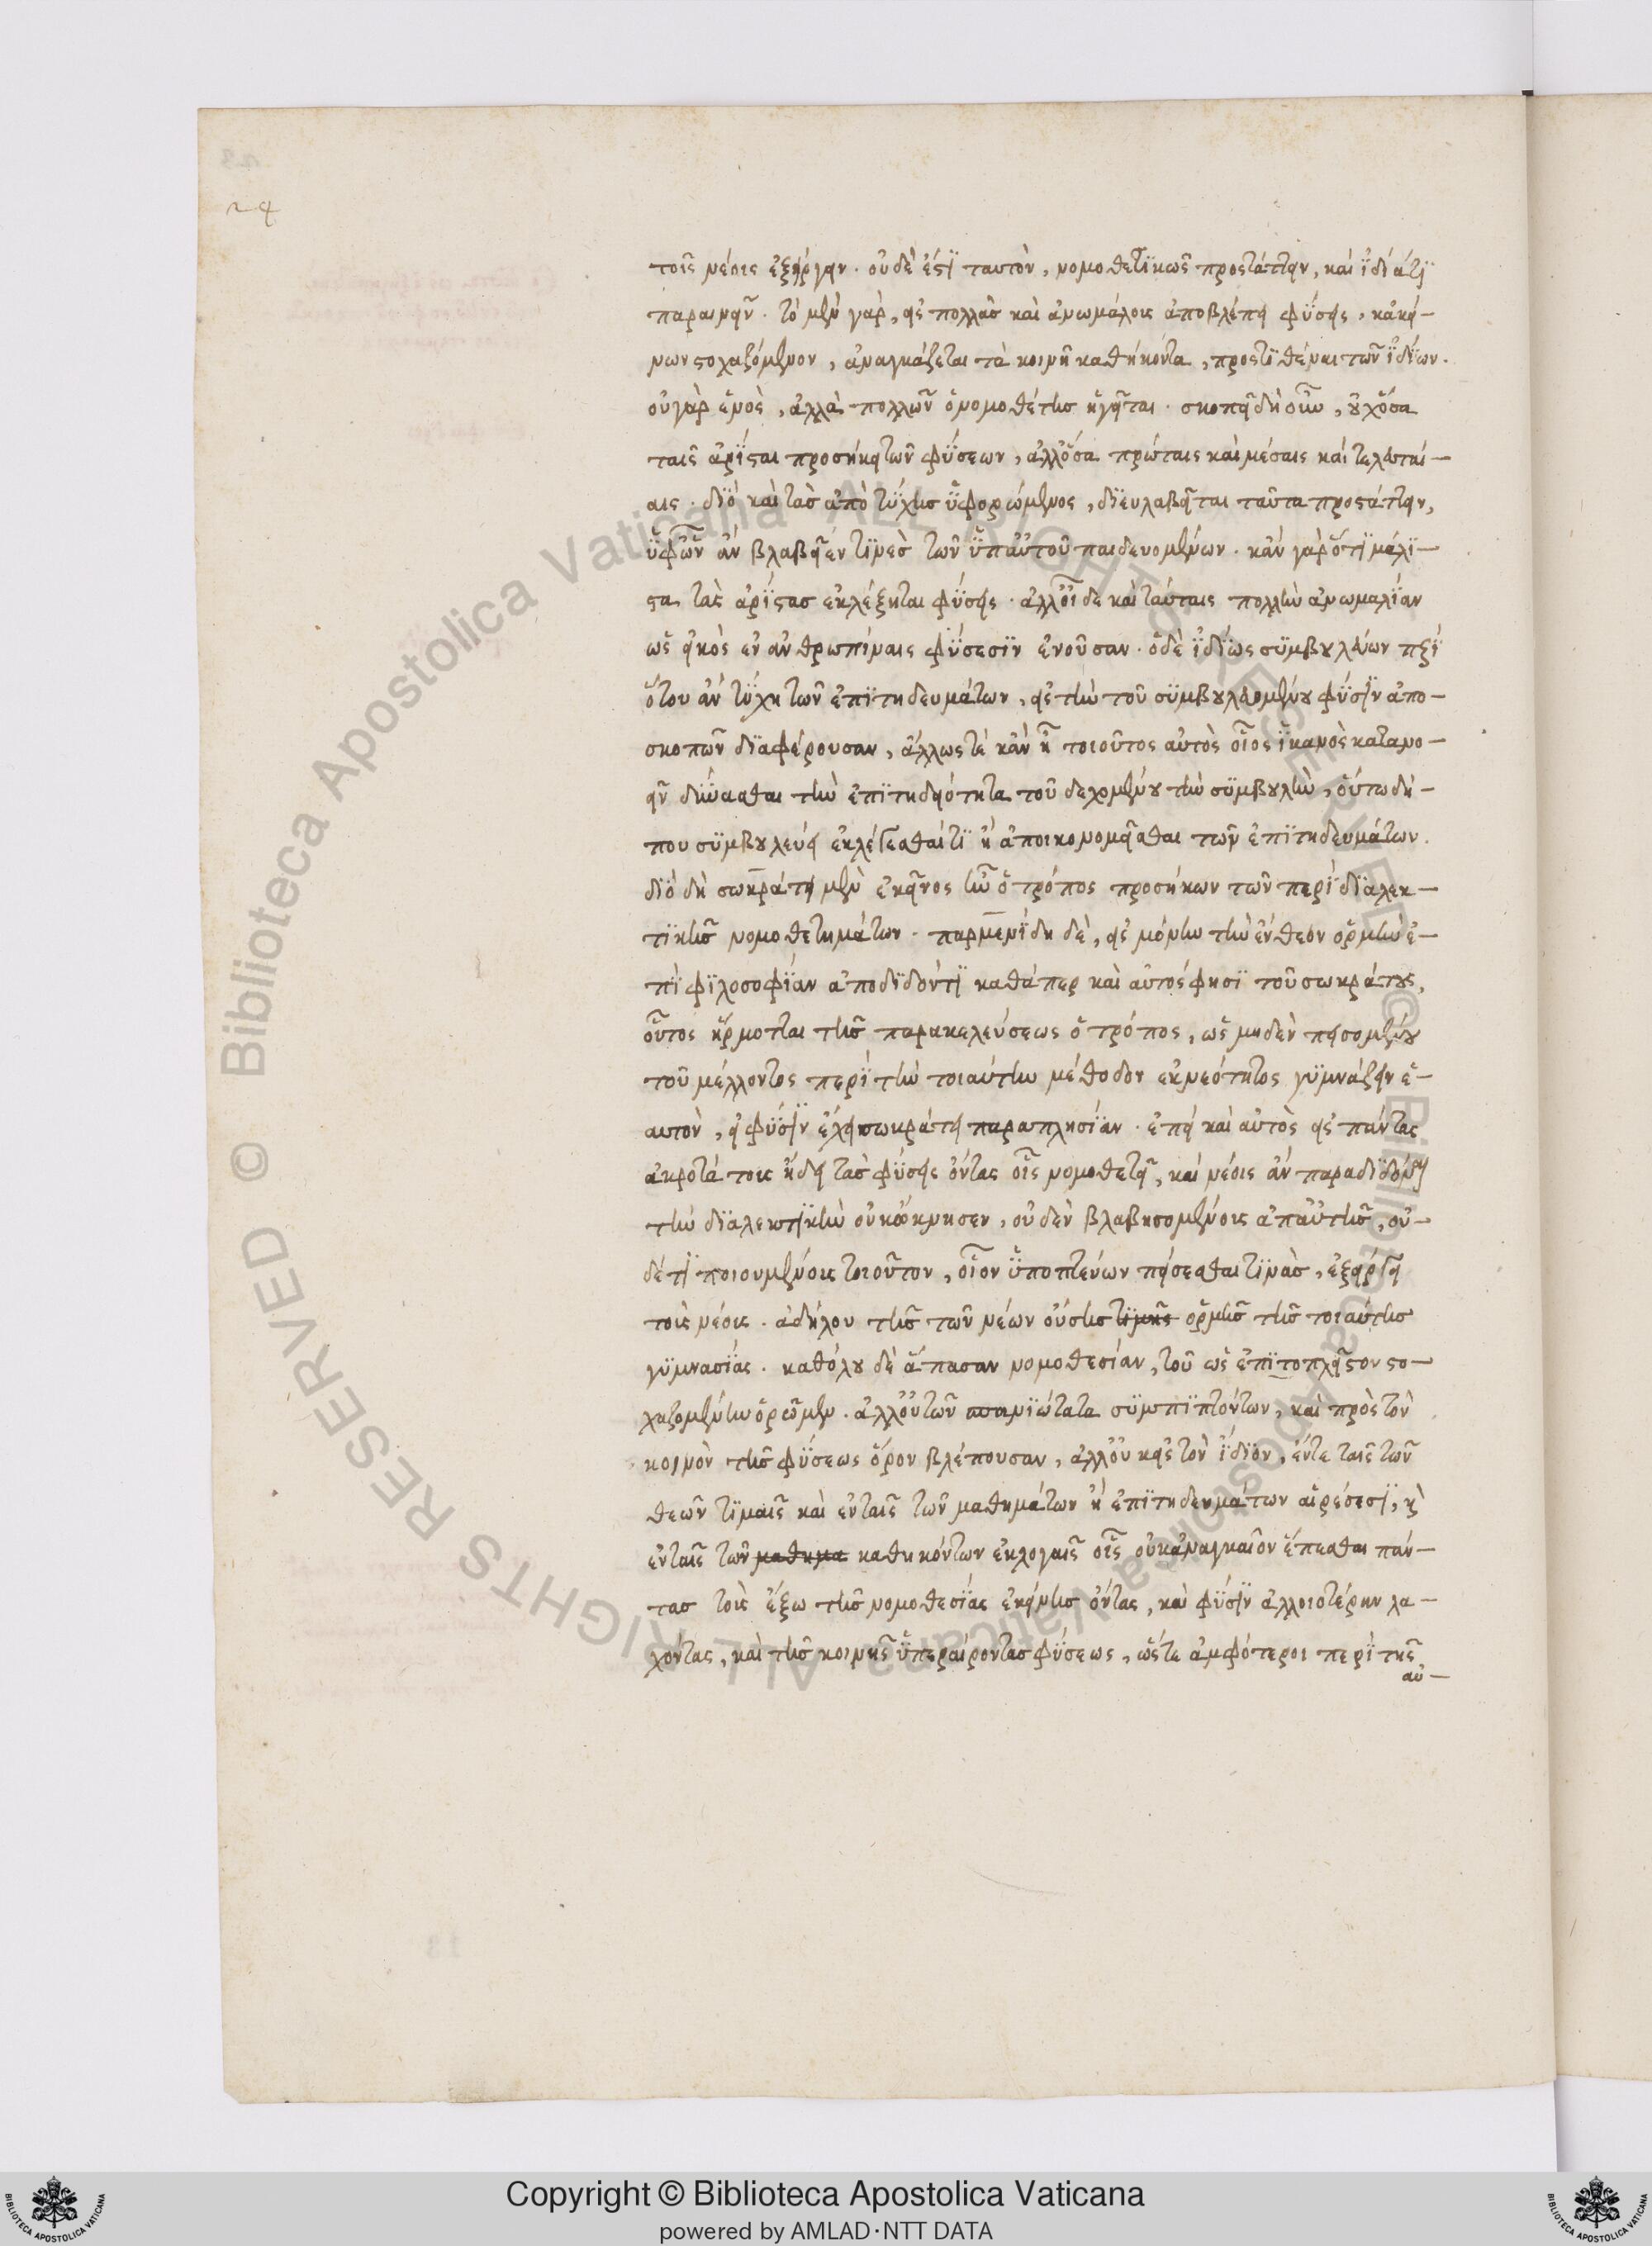 24
τοῖς νέοις ἐξείργειν. οὐδὲ ἐστὶ ταυτὸν, νομοθετικῶς προστάττειν, καὶ ἰδίᾳ τϊ
παραινεῖν. τὸ μὲν γὰρ, εἰς πολλὰς καὶ ἀνωμάλους ἀποβλέπει φύσεις, κἀκεί-
νων στοχαζόμενον, ἀναγκάζεται τὰ κοινῇ καθήκοντα, προστιθέναι τῶν ἰδίων.
οὐ γὰρ ἑνὸς, ἀλλὰ πολλῶν ὁ νομοθέτης ἡγεῖται. σκοπεῖ δὴ οὖν, οὐχ ὅσα
ταῖς ἀρίσταις προσήκει τῶν φύσεων, ἀλλ' ὅσα πρώταις καὶ μέσαις καὶ τελευταί-
αις. διὸ καὶ τὰς ἀπὸ τύχης ὑφορώμενος, διευλαβεῖται ταῦτα προστάττειν,
ὑφ' ὧν ἂν βλαβεῖέν τινες τῶν ὑπ' αὐτοῦ παιδευομένων. κἂν γὰρ ὅτι μάλι-
στα τὰς ἀρίστας ἐκλέξηται φύσεις. ἀλλ' οἶδε καὶ ταύταις πολλὴν ἀνωμαλίαν
ὡς εἰκὸς ἐν ἀνθρωπίναις φύσεσιν ἐνοῦσαν. ὁ δὲ ἰδίως συμβουλεύων περὶ
ὅτου ἂν τύχῃ τῶν ἐπιτηδευμάτων, εἰς τὴν τοῦ συμβουλευομένου φύσιν ἀπο-
σκοπῶν διαφέρουσαν, ἄλλως τέ κἂν ᾖ τοιοῦτος αὐτὸς οἷος ἱκανὸς κατανο-
εῖν δύνασθαι τὴν ἐπιτηδειότητα τοῦ δεχομένου τὴν συμβουλὴν, οὕτω δή-
που συμβουλεύει ἐκλέγεσθαί τι ἢ ἀποικονομεῖσθαι τῶν ἐπιτηδευμάτων.
διὸ δὴ σωκράτει μὲν ἐκεῖνος ἦν ὁ τρόπος προσήκων τῶν περὶ διαλεκ-
τικῆς νομοθετημάτων. παρμενίδῃ δὲ, εἰς μόνην τὴν ἔνθεον ὁρμὴν ἐ-
πὶ φιλοσοφίαν ἀποδιδόντι καθάπερ καὶ αὐτός φησι τοῦ σωκράτους,
οὗτος ἥρμοσται τῆς παρακελεύσεως ὁ τρόπος, ὡς μηδὲν πεισομένου
τοῦ μέλλοντος περὶ τὴν τοιαύτην μέθοδον ἐκ νεότητος γυμνάζειν ἑ-
αυτὸν, εἰ φύσιν ἔχει σωκράτει παραπλησίαν. ἐπεὶ καὶ αὐτὸς εἰς πάντας
ἀκροτάτους ᾔδει τὰς φύσεις ὄντας οἷς νομοθετεῖ, καὶ νέοις ἂν παραδιδόναι
τὴν διαλεκτικὴν οὐκ ὤκνησεν, οὐδὲν βλαβησομένοις ἀπ' αὐτῆς, οὐ-
δέ τι ποιουμένοις τοιοῦτον, οἷον ὑποπτεύων πείσεσθαι τινὰς, ἐξείργει
τοὺς νέους. ἀδήλου τῆς τῶν νέων οὔσης τινῆς ὁρμῆς τῆς τοιαύτης
γυμνασίας. καθόλου δὲ ἅπασαν νομοθεσίαν, τοῦ ὡς ἐπιτοπλεῖστον στο-
χαζομένην ὁρῶμεν. ἀλλ' οὐ τῶν σπανιώτατα συμπιπτόντων, καὶ πρὸς τὸν
κοινὸν τῆς φύσεως ὅρον βλέπουσαν, ἀλλ' οὐκ εἰς τὸν ἴδιον, ἔν τε ταῖς τῶν
θεῶν τιμαῖς καὶ ἐν ταῖς τῶν μαθημάτων ἢ ἐπιτηδευμάτων αἱρέσεσι, κὶ
ἐν ταῖς τῶν μαθημα καθηκόντων ἐκλογαῖς οἷς οὐκ ἀναγκαῖον ἕπεσθαι πάν-
τας τοὺς ἔξω τῆς νομοθεσίας ἐκείνης ὄντας, καὶ φύσιν ἀλλοιοτέρην λα-
χόντας, καὶ τῆς κοινῆς ὑπεραίροντας φύσεως, ὥστε ἀμφότεροι περὶ τῆς
αὐ-
Copyright © Biblioteca Apostolica Vaticana
powered by AMLAD·NTT DATA